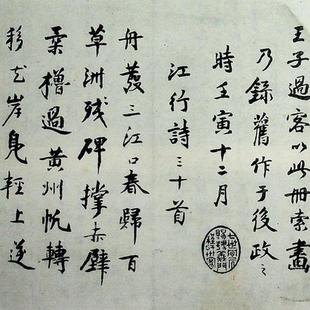 王子過客以此册索畫
乃録舊作于後政之
時壬寅十二月
江行詩三十首
舟發三江口春歸百
草洲残碑撑赤壁
柔櫓過黄州帆轉
移花岸鳧輕上逆